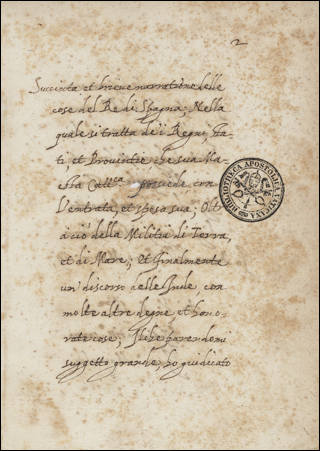 2
Succinta et breve narratione delle
cose del Re di Spagna; Nella
quale si tratta de i Regni, Sta-
ti, et Provintie che sua Ma-
stà Catt.ca possiede, con
l'entrata, et spesa sua; Olt-
a ciò della Militia di Terra,
et di Mare; Et finalmente
un discorso delle Inde, con
molte altre degne, et hono-
rate cose; Il che parendomi
suggetto grande, ho giudicato
BIBLIOTHECA APOSTOLICA VATICANA